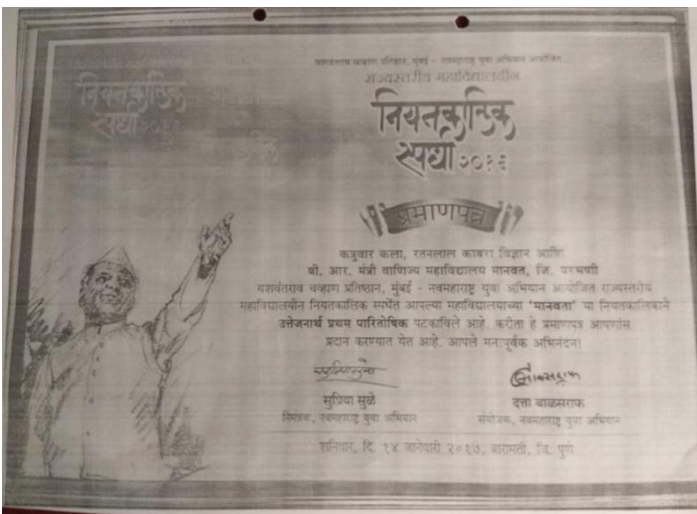 यशवंतराव चव्हाण प्रतिष्ठान, मुंबई - नवमहाराष्ट्र युवा अभियान आयोजित
राज्यस्तरीय महाविद्यालयीन
नियतकालिक
स्पर्धा २०१६
नियतकालिक
स्पर्धा २०१६
प्रमाणपत्र
कत्रुवार कला, रतनलाल काबरा विज्ञान आणि
बी. आर. मंत्री वाणिज्य महाविद्यालय मानवत, जि. परभणी
यशवंतराव चव्हाण प्रतिष्ठान, मुंबई - नवमहाराष्ट्र युवा अभियान आयोजित राज्यस्तरीय
महाविद्यालयीन नियतकालिक स्पर्धेत आपल्या महाविद्यालयाच्या 'मानवता' या नियतकालिकाने
उत्तेजनार्थ प्रथम पारितोषिक पटकाविले आहे. करीता हे प्रमाणपत्र आपणांस
प्रदान करण्यात येत आहे. आपले मनःपूर्वक अभिनंदन!
सुप्रिया सुळे
निमंत्रक, नवमहाराष्ट्र युवा अभियान
दत्ता बाळसराफ
संयोजक, नवमहाराष्ट्र युवा अभियान
शनिवार, दि. १४ जानेवारी २०१७, बारामती, जि. पुणे